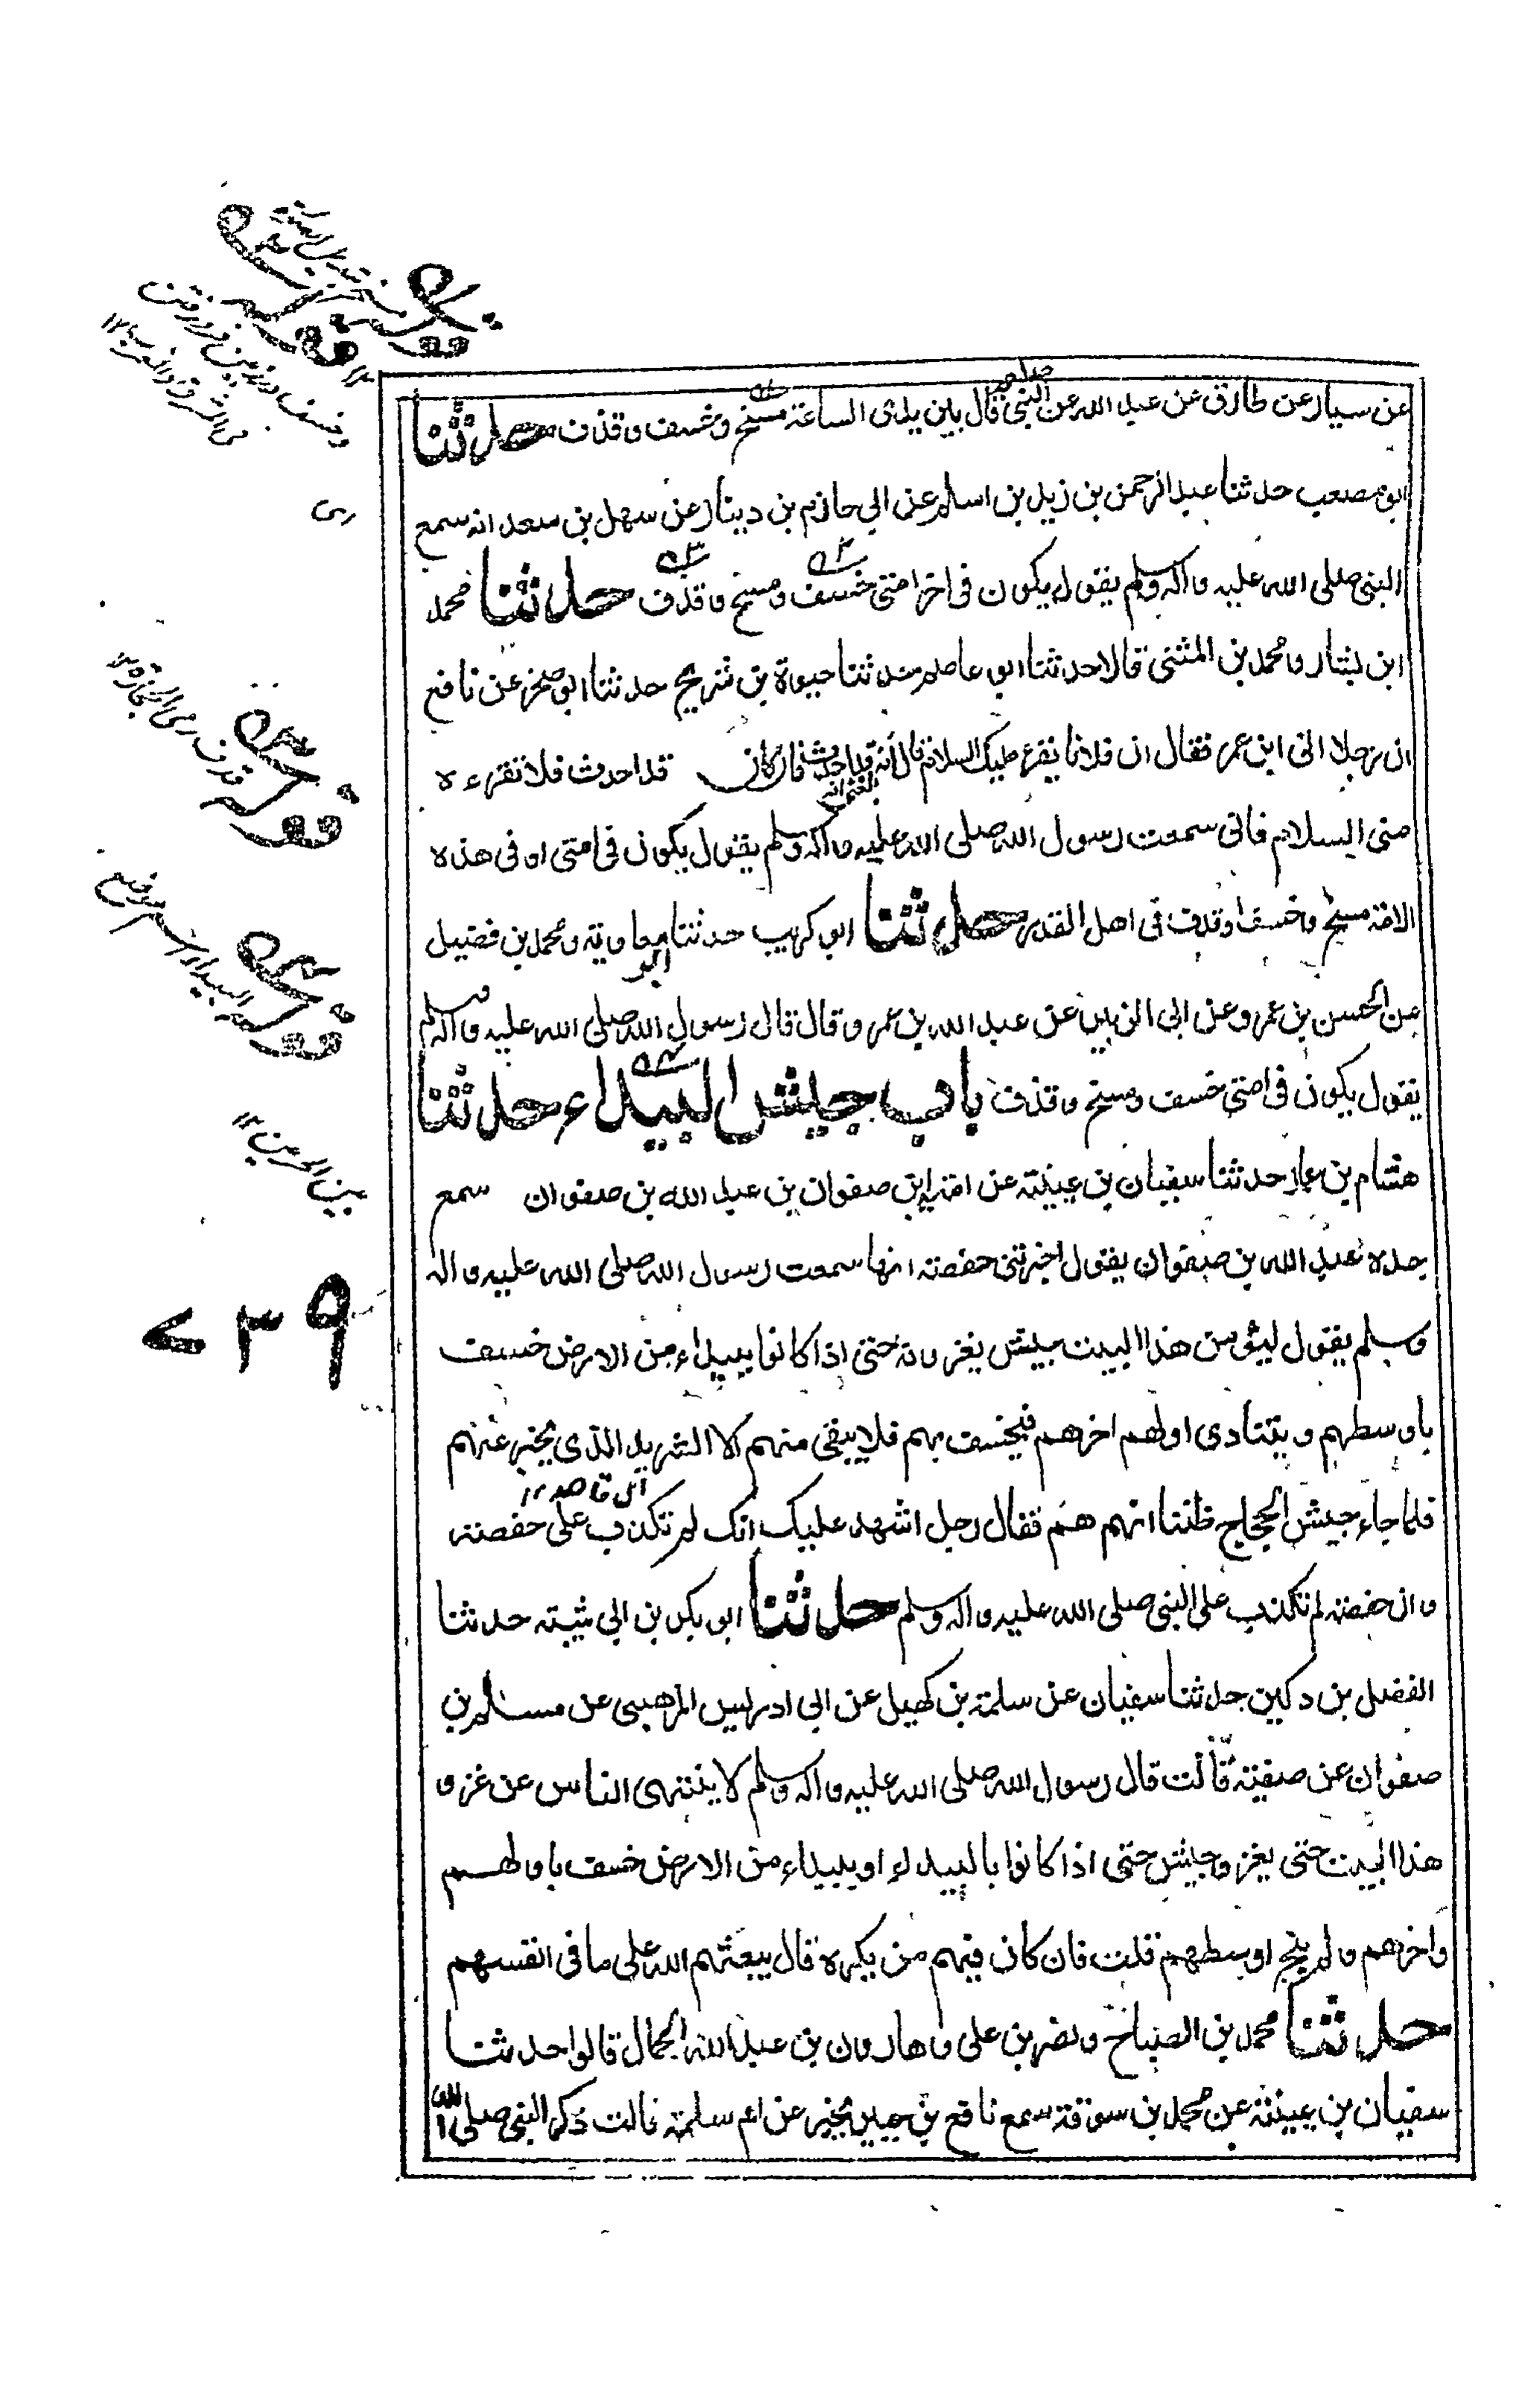 عن سيار عن طارق عن عبد الله عن النبي قال بين يدي الساعة مسخ وخسف وقذف حدثنا
ابو مصعب حدثنا عبد الرحمن بن زيد بن اسلم عن ابي حازم بن دينار عن سهل بن سعد انه سمع
النبي صلى الله عليه واله وسلم يقول يكون في اخر امتي خسف ومسخ وقذف حدثنا محمد
ابن بشار ومحمد بن المثنى قالا حدثنا ابو عاصم حدثنا حيوة بن شريح حدثنا ابو صخر عن نافع
ان رجلا اتى ابن عمر فقال ان فلانا يقرء عليك السلام قال انه بلغني انه قد احدث فان كان قد احدث فلا تقرءه
مني السلام فاني سمعت رسول الله صلى الله عليه واله وسلم يقول يكون في امتي او في هذه
الامة مسخ وخسف وقذف في اهل القدر حدثنا ابو كريب حدثنا ابو معاوية ومحمد بن فضيل
عن الحسن بن عمرو عن ابي الزبير عن عبد الله بن عمرو قال قال رسول الله صلى الله عليه واله وسلم
يقول يكون في امتي خسف ومسخ وقذف باب جيش البيداء حدثنا
هشام بن عمار حدثنا سفيان بن عيينة عن امية ابن صفوان بن عبد الله بن صفوان سمع
جده عبد الله بن صفوان يقول اخبرتني حفصة انها سمعت رسول الله صلى الله عليه واله
وسلم يقول ليؤمن هذا البيت جيش يغزونه حتى اذا كانوا ببيداء من الارض خسف
باوسطهم ويتنادى اولهم اخرهم فيخسف بهم فلا يبقى منهم الا الشريد الذي يخبر عنهم
اى قاصد ١٢
فلما جاء جيش الحجاج ظننا انهم هم فقال رجل اشهد عليك انك لم تكذب على حفصة
وان حفصة لم تكذب على النبي صلى الله عليه واله وسلم حدثنا ابو بكر بن ابي شيبة حدثنا
الفضل بن دكين حدثنا سفيان عن سلمة بن كهيل عن ابي ادريس المرهبي عن مسلم بن
صفوان عن صفية قالت قال رسول الله صلى الله عليه واله وسلم لا ينتهي الناس عن غزو
هذا البيت حتى يغزو جيش حتى اذا كانوا بالبيداء او ببيداء من الارض خسف باولهم
واخرهم ولم ينج اوسطهم قلت فان كان فيهم من يكره قال يبعثهم الله على ما في انفسهم
حدثنا محمد بن الصباح ونصر بن علي وهارون بن عبد الله الحمال قالوا حدثنا
سفيان بن عيينة عن محمد بن سوقة سمع نافع بن جبير يخبر عن ام سلمة قالت ذكر النبي صلى الله
قوله
قوله
قذف رمى الحجارة ١٢
قوله
البيداء اسم موضع
بين الحرمين ١٢
٧٣٩